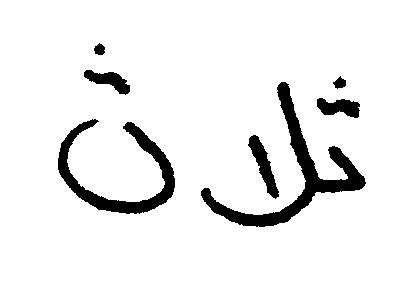 ثلاث